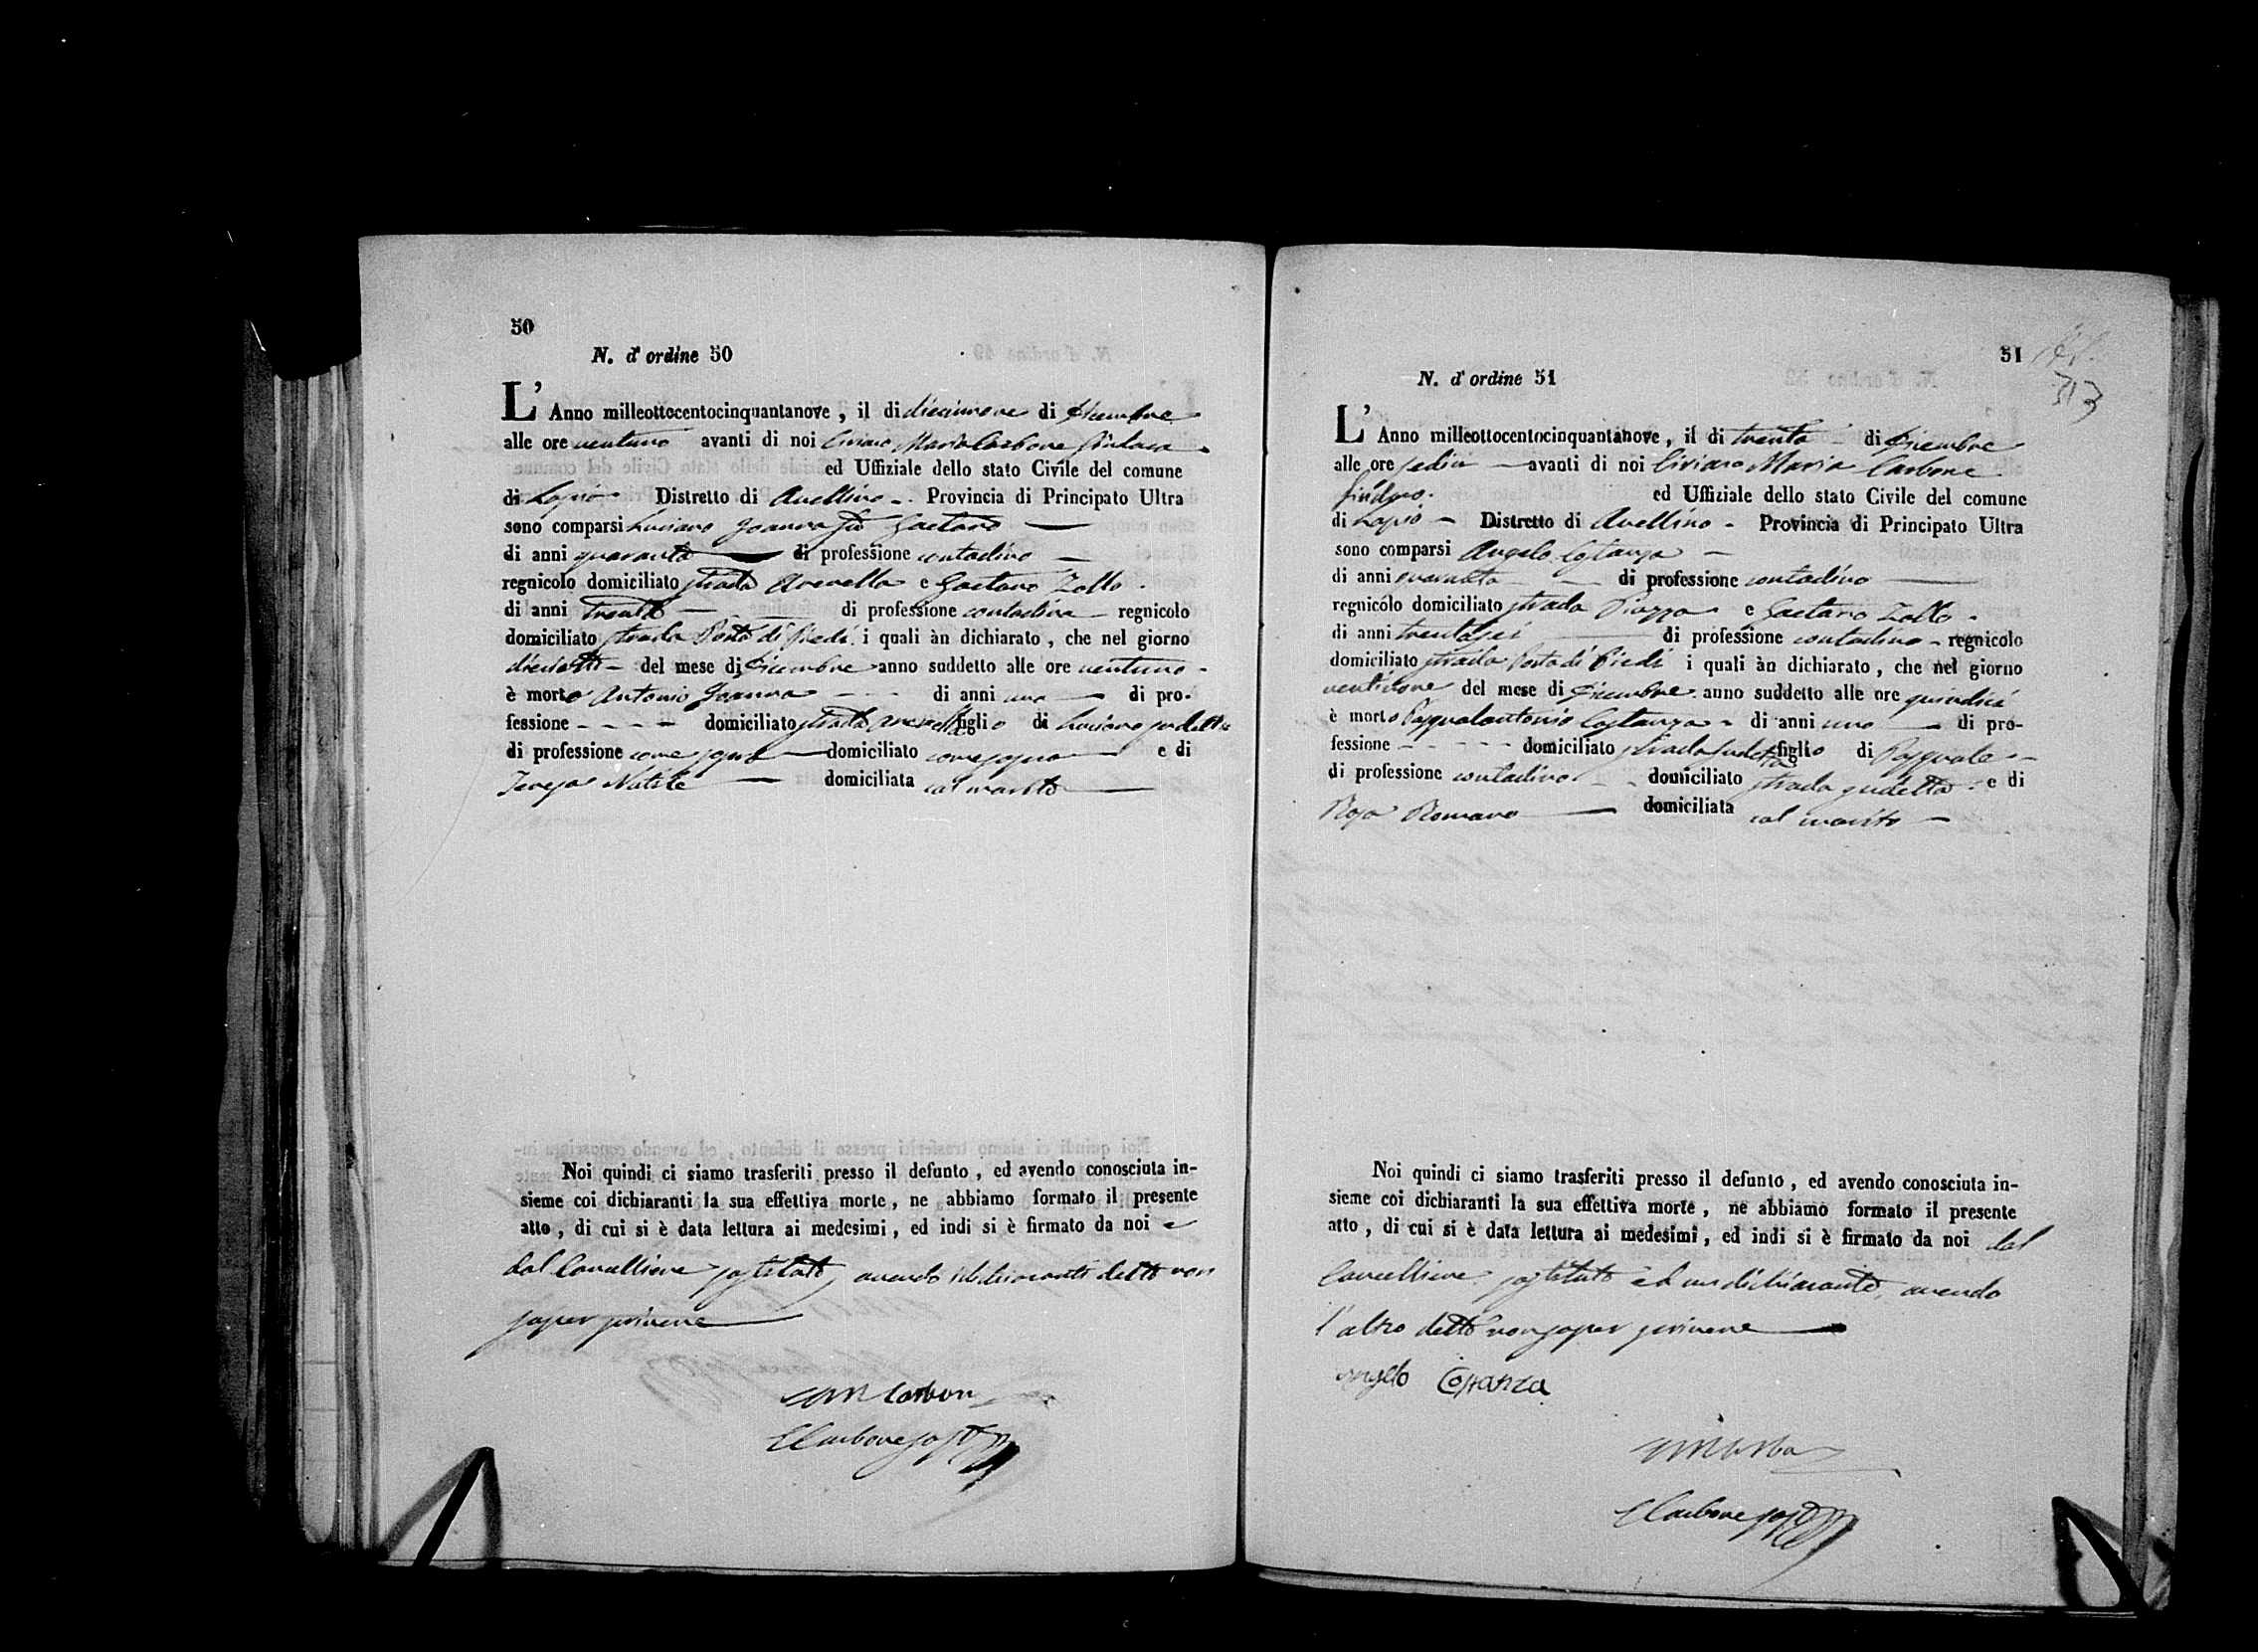 50
N. d'ordine 50
L'Anno milleottocentocinquantanove, il di diecinnove di Dicembre
alle ore ventuno avanti di noi Ciriaco Maria Carbone Sindaco
ed Uffiziale dello stato Civile del comune
di Lapio Distretto di Avellino Provincia di Principato Ultra
sono comparsi Luciano Joanna fu Gaetano
di anni quaranta di professione contadino
regnicolo domiciliato strada e Gaetano Zollo
di anni trenta di professione contadino regnicolo
domiciliato strada Porta di Piedi i quali àn dichiarato, che nel giorno
dieciotto del mese di Dicembre anno suddetto alle ore ventuno
è morto Antonio Joanna di anni uno di pro-
fessione domiciliato strada figlio di Luciano sudetto
di professione come sopra domiciliato come sopra e di
Teresa Natale domiciliata col marito
Noi quindi ci siamo trasferiti presso il defunto, ed avendo conosciuta in-
sieme coi dichiaranti la sua effettiva morte, ne abbiamo formato il presente
atto, di cui si è data lettura ai medesimi, ed indi si è firmato da noi e
dal Cancelliere sostituto, avendo i dichiaranti detto non
saper scrivere
CM Carbon
Carbone sost
51
313
N. d'ordine 51
L'Anno milleottocentocinquantanove, il di trenta di Dicembre
alle ore sedici avanti di noi Ciriaco Maria Carbone
Sindaco ed Uffiziale dello stato Civile del comune
di Lapio Distretto di Avellino Provincia di Principato Ultra
sono comparsi Angelo Costanza
di anni quaranta di professione contadino
regnicolo domiciliato strada Piazza e Gaetano Zollo
di anni trentasei di professione contadino regnicolo
domiciliato strada Porta di Piedi i quali àn dichiarato, che nel giorno
ventinove del mese di Dicembre anno suddetto alle ore quindici
è morto Pasqualantonio Costanza di anni uno di pro-
fessione domiciliato strada sudetta figlio di Pasquale
di professione contadino domiciliato strada sudetta e di
Rosa Romano domiciliata col marito
Noi quindi ci siamo trasferiti presso il defunto, ed avendo conosciuta in-
sieme coi dichiaranti la sua effettiva morte, ne abbiamo formato il presente
atto, di cui si è data lettura ai medesimi, ed indi si è firmato da noi dal
Cancelliere sostituto ed un dichiarante, avendo
l'altro detto non saper scrivere
Angelo Costanza
Carbone sost